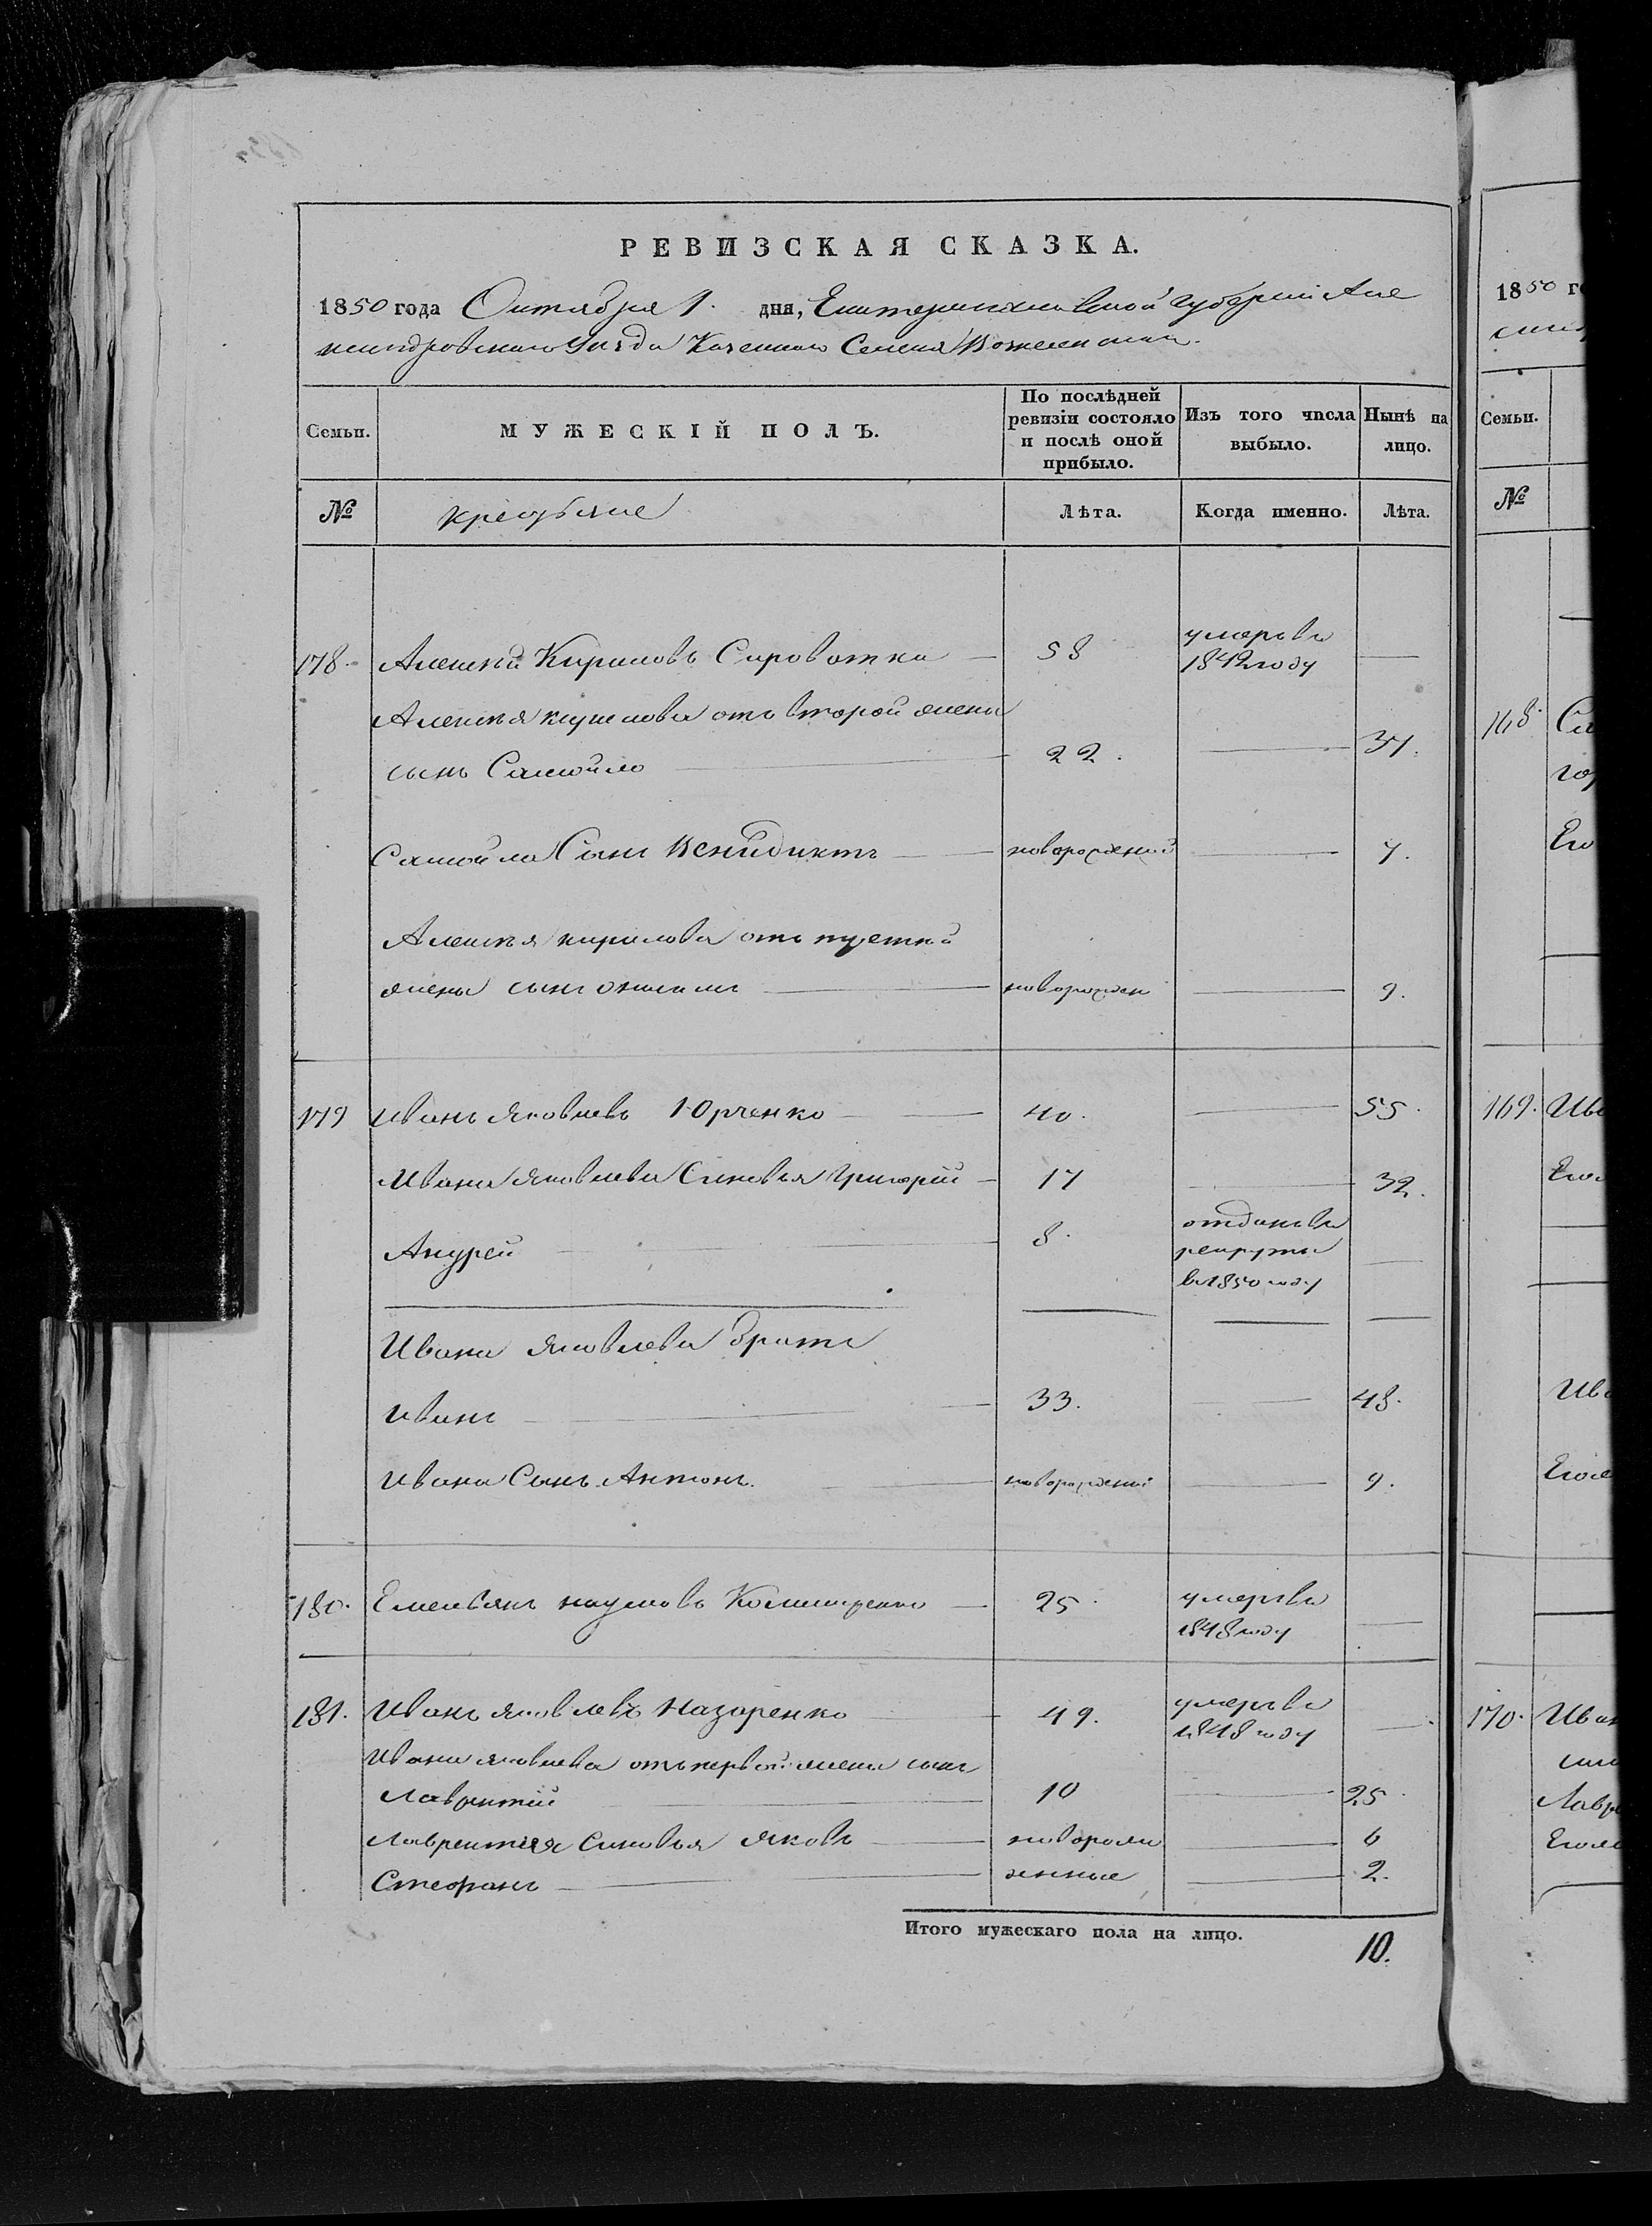 РЕВИЗСКАЯ СКАЗКА.
1850 года Октября 1. дня, Екатеринославской губернии Але
ксандровскаго Уезда Казеннаго Селения Вознесенки.
Семьи.
МУЖЕСКІЙ ПОЛЪ.
По послѣдней ревизіи состояло и послѣ оной прибыло.
Изъ того числа выбыло.
Нынѣ на лицо.
№
крестьяне
Лѣта.
Когда именно.
Лѣта.
178. Алексей Кириловъ Сыроватка 58 умеръ въ
1842 году
Алексея кирилова отъ второй жены
сынъ Самойло 22. 37.
Самойла Сынъ Венидиктъ новорожденый 7.
Алексея кирилова отъ третей
жены сынъ новорожден 9.
179 Иванъ Яковлевъ Юрченко 40. 55.
Ивана Яковлева Сыновья Григорий 17 32.
отданъ въ
Андрей 8. рекруты
въ 1850 году
Ивана Яковлева братъ
Иванъ 33. 48.
Ивана Сынъ Антонъ. новорожденый 9.
180. Емельянъ наумовъ 25. умеръ въ
1848 году
181. Иванъ Яковлевъ Назаренко 49. умеръ въ
1848 году
Ивана яковлева отъ первой жены сынъ
Лаврентий 10 25
Лаврентия Сыновья Яковъ новорож 6
Стефанъ денные 2.
Итого мужескаго пола на лицо.
10.
1850 г
Семьи.
№
168.
Его
169. Ива
Его
Ива
170. Иван
Лавре